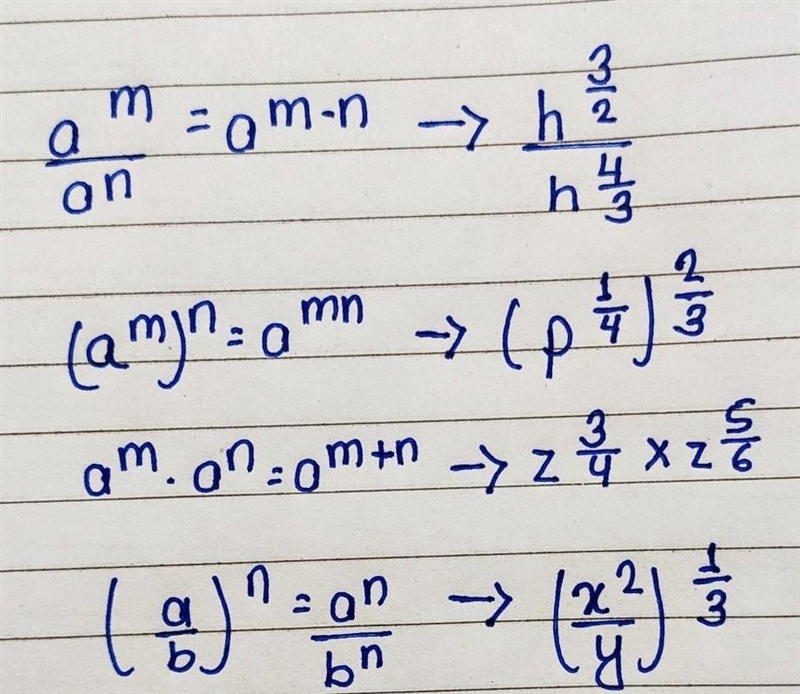 a^m / a^n = a^(m-n) → h^(3/2) / h^(4/3)
(a^m)^n = a^(mn) → (p^(1/4))^(2/3)
a^m · a^n = a^(m+n) → z^(3/4) × z^(5/6)
(a/b)^n = a^n / b^n → (x^2/y)^(1/3)